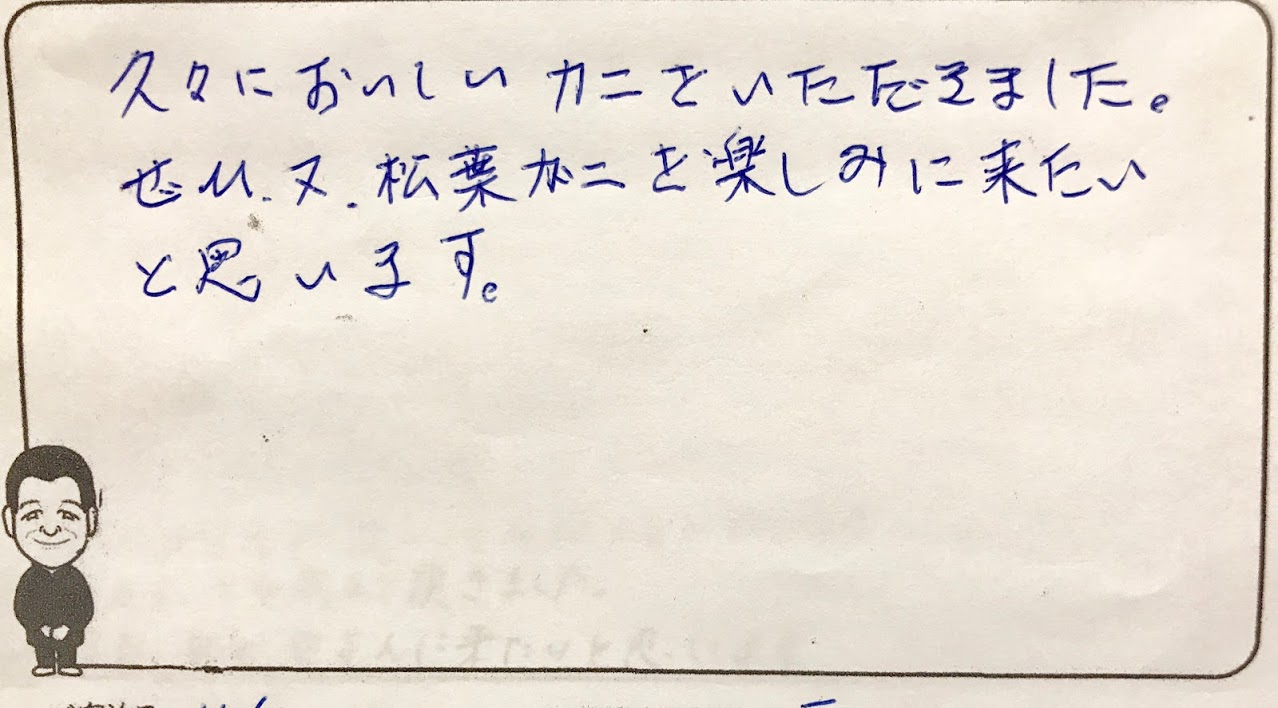 久々においしいカニをいただきました。
ぜひ.又.松葉ガニを楽しみに来たい
と思います。